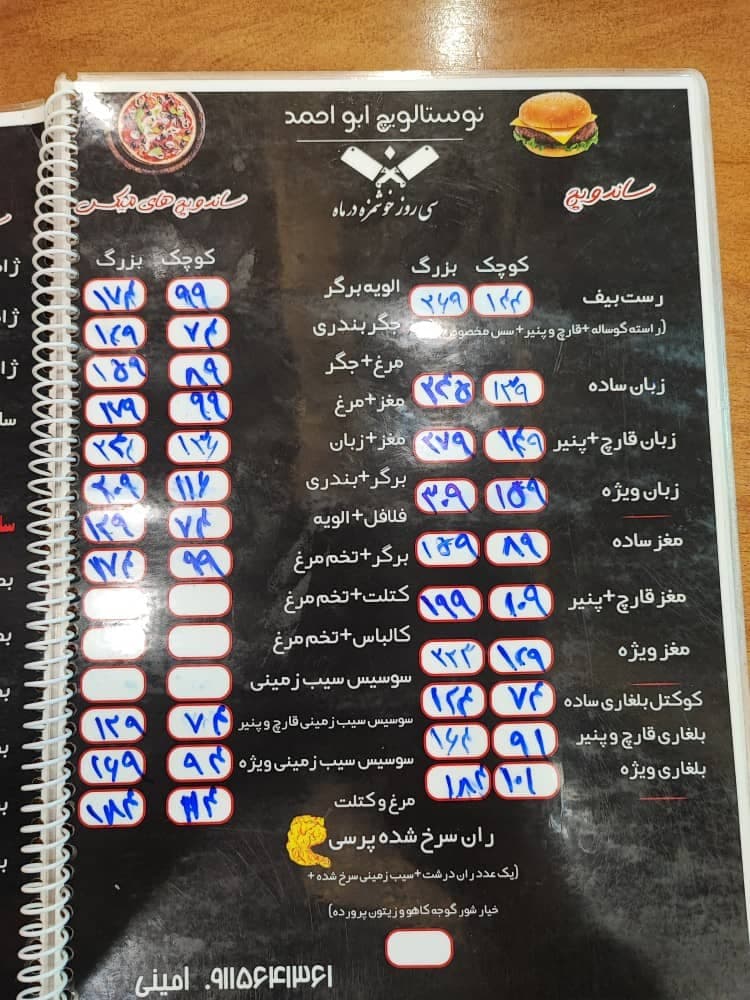 نوستالویچ ابو احمد
سی روز خوشمزه در ماه
ساندویچ
کوچک بزرگ
رست بیف ۱۴۴ ۲۶۹
(راسته گوساله+قارچ و پنیر+سس مخصوص
زبان ساده ۱۳۹ ۲۴۵
زبان قارچ+پنیر ۱۴۹ ۲۷۹
زبان ویژه ۱۵۹ ۳۰۹
مغز ساده ۸۹ ۱۵۹
مغز قارچ+پنیر ۱۰۹ ۱۹۹
مغز ویژه ۱۲۹ ۲۲۳
کوکتل بلغاری ساده ۷۴ ۱۲۴
بلغاری قارچ و پنیر ۹۱ ۱۶۴
بلغاری ویژه ۱۰۱ ۱۸۴
ساندویچ های میکس
کوچک بزرگ
الویه برگر ۹۹ ۱۷۴
جگر بندری ۷۴ ۱۲۹
مرغ+جگر ۸۹ ۱۵۹
مغز+مرغ ۹۹ ۱۷۹
مغز+زبان
برگر+بندری ۱۱۶ ۲۰۹
فلافل+الویه ۷۴ ۱۲۹
برگر+تخم مرغ ۹۹ ۱۷۴
کتلت+تخم مرغ
کالباس+تخم مرغ
سوسیس سیب زمینی
سوسیس سیب زمینی قارچ و پنیر ۷۴ ۱۲۹
سوسیس سیب زمینی ویژه ۹۴ ۱۶۹
مرغ و کتلت ۱۸۴
ران سرخ شده پرسی
(یک عدد ران درشت+سیب زمینی سرخ شده+
خیار شور گوجه کاهو و زیتون پرورده)
۰۹۱۱۵۶۴۱۳۶۱ امینی